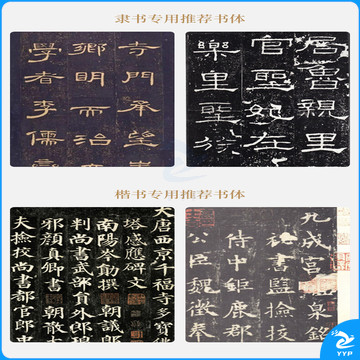 隶书专用推荐书体
寺門承望
鄉明而治
學者李儒
居魯親里
官聖妃在
樂里聖族
楷书专用推荐书体
大唐西京千福寺多寶佛
塔感應碑文
南陽岑勛撰 朝議郎
判尚書武部員外郎琅
邪顏真卿書 朝散大
夫撿挍尚書都官郎中
九成宮醴泉銘
祕書監撿挍
侍中鉅鹿郡
公臣魏徵奉
YYF